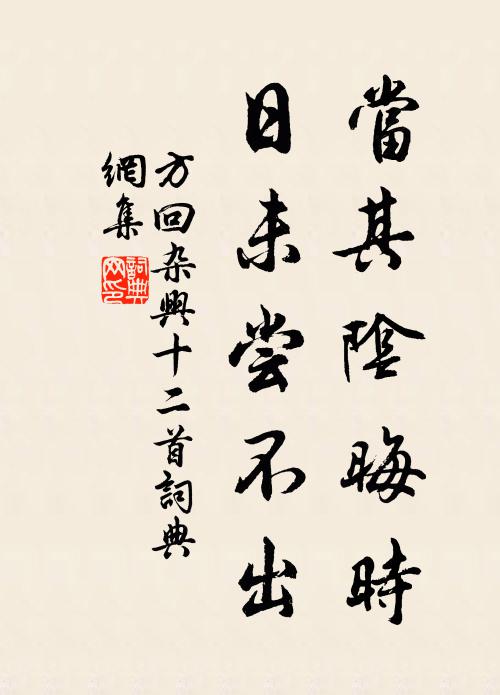 當其陰晦時
日未尝不出
方回杂興十二首詞典
網集
詞典網印